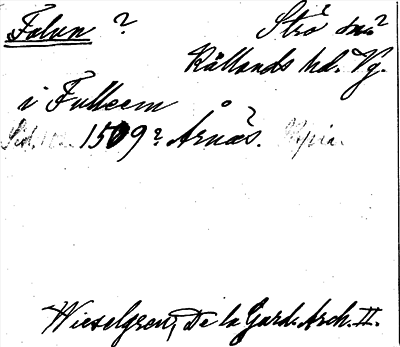 Folun ? Strö sn?
Kållands hd. Vg.
i Fulleem
1509? Årnäs.
Wieselgren, De la Gard. Arch. II.